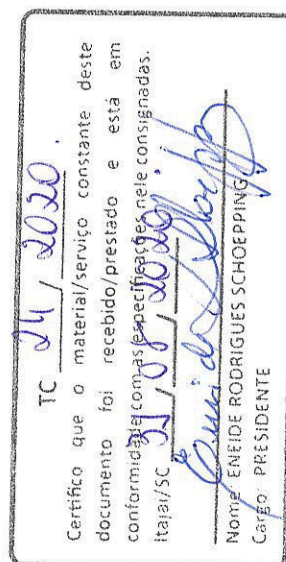 TC 24 / 2020.
Certifico que o material/serviço constante deste
documento foi recebido/prestado e está em
conformidade com as especificações nele consignadas.
Itajaí/SC 31 / 08 / 2020
Nome: ENEIDE RODRIGUES SCHOEPPING
Cargo: PRESIDENTE